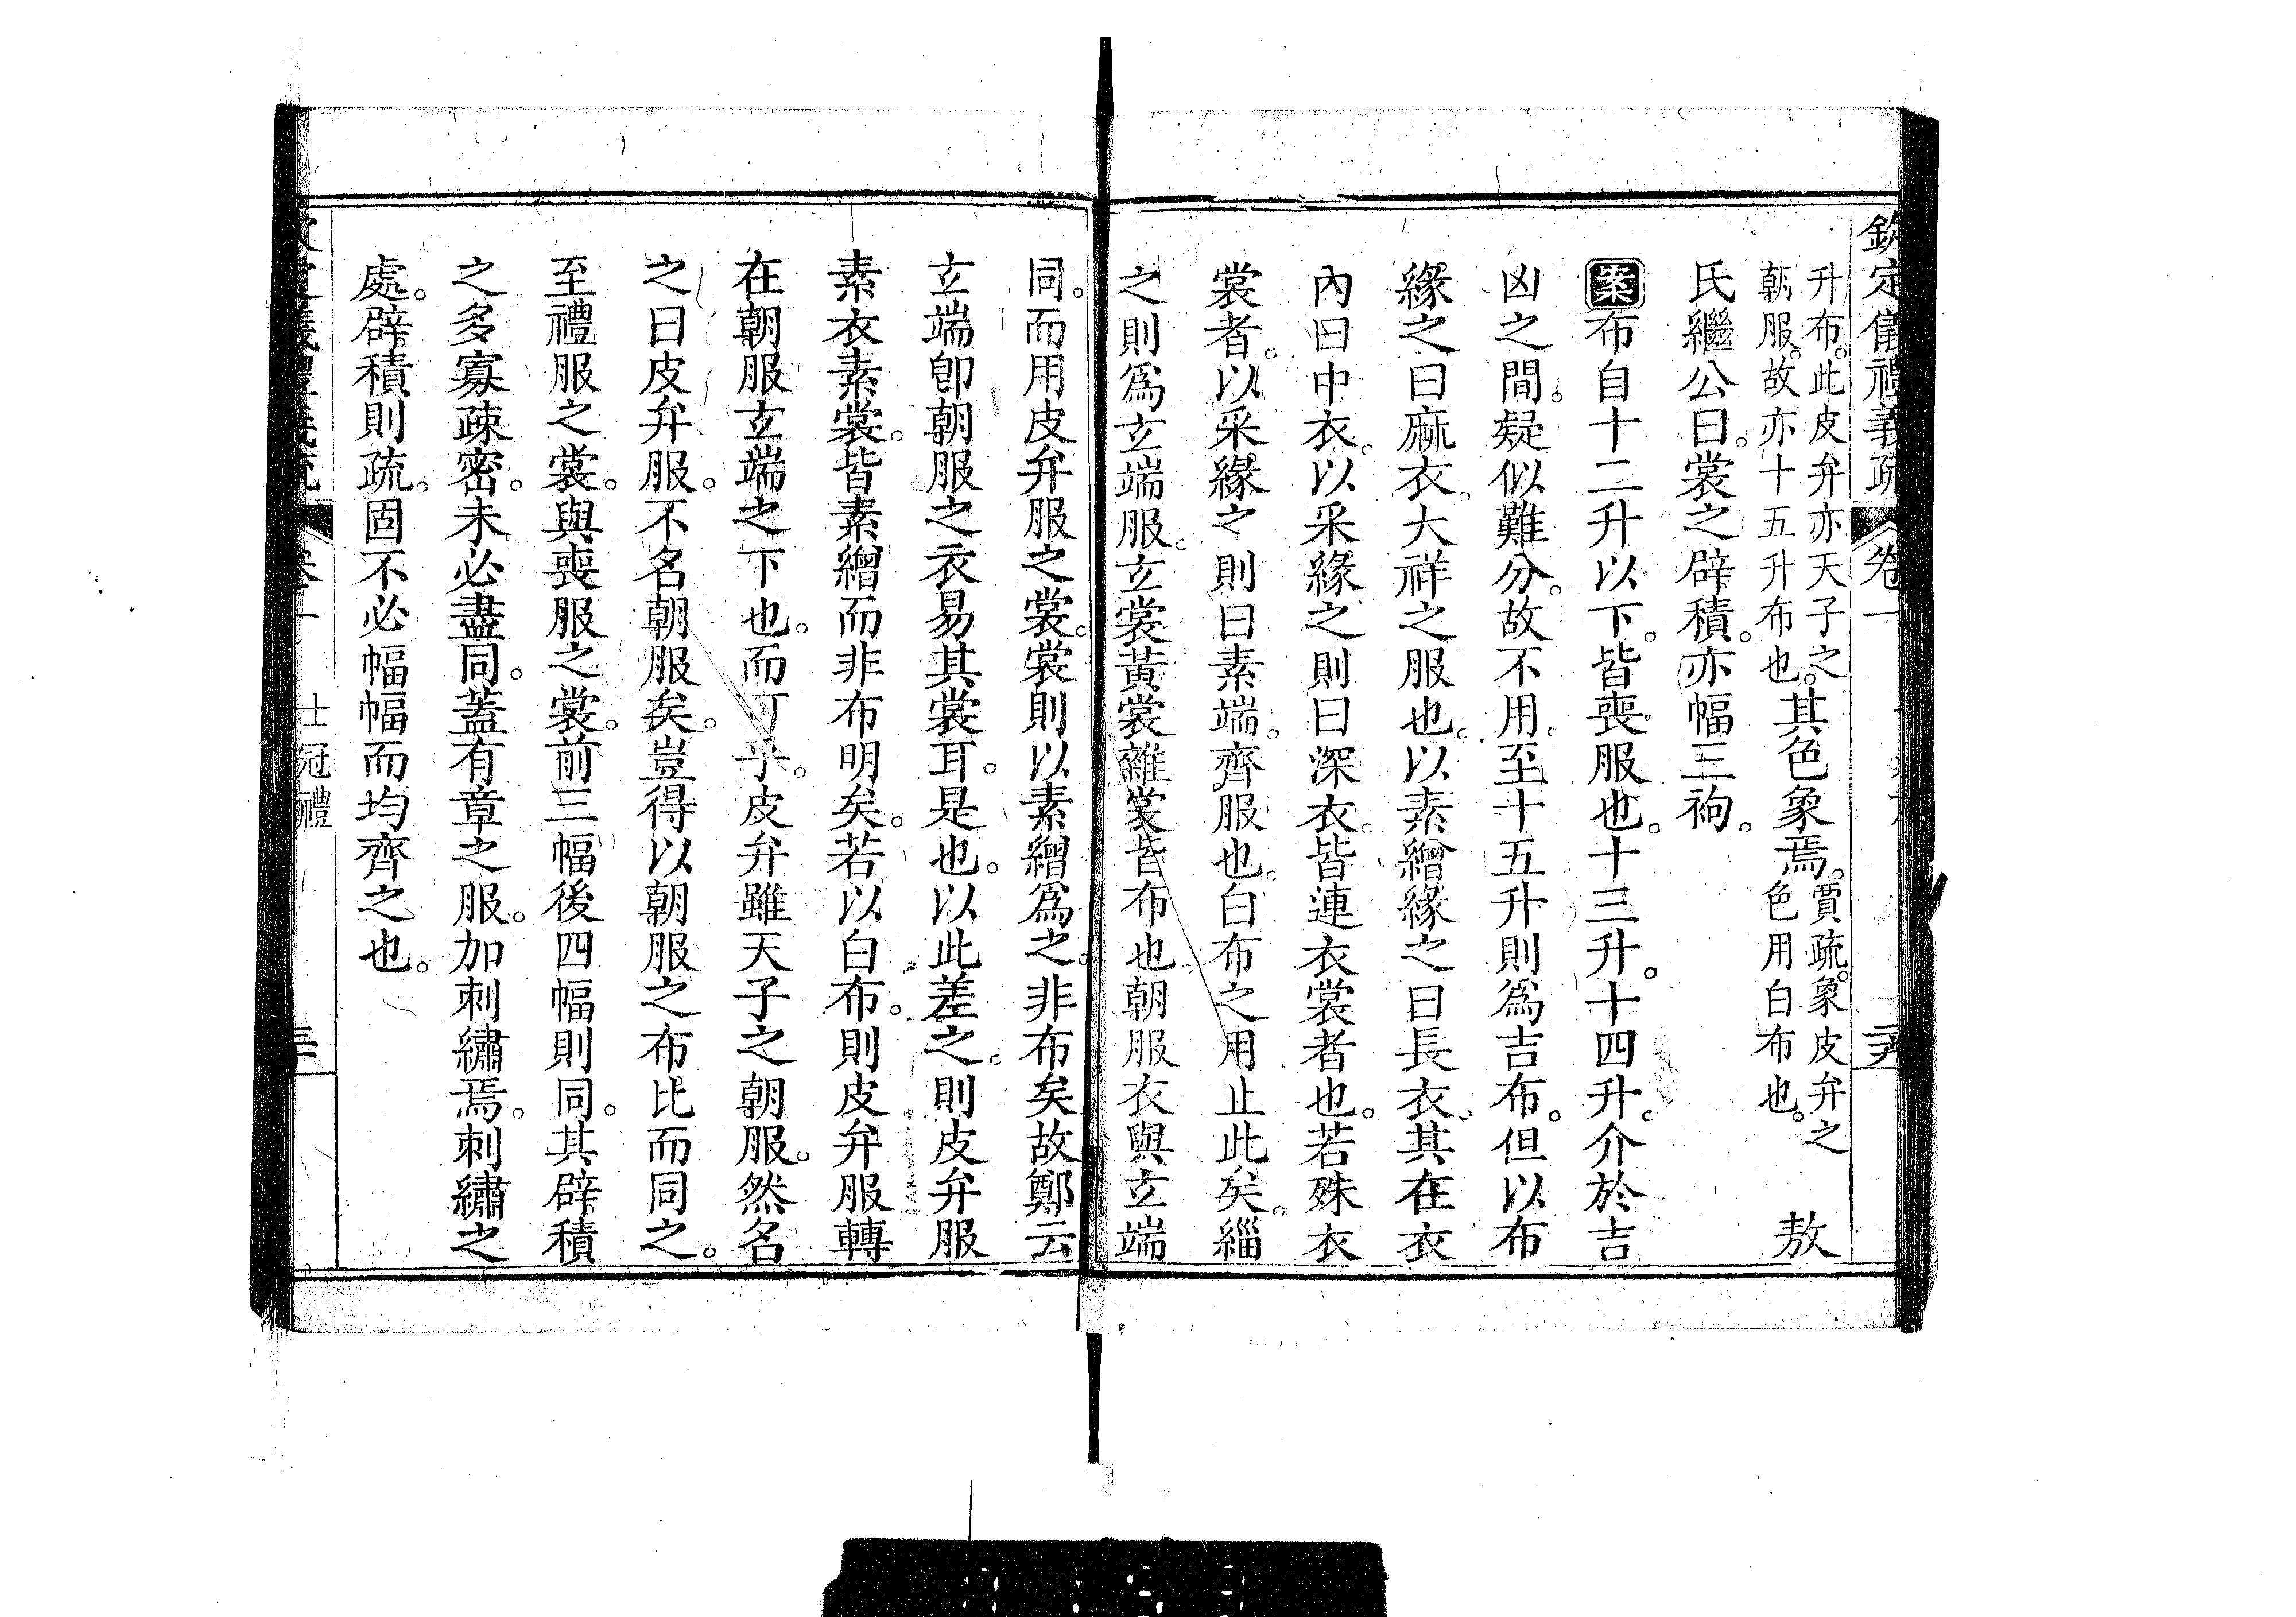 欽定儀禮義疏 卷一
升布。此皮弁亦天子之
朝服。故亦十五升布也。
其色象焉。
賈疏。象皮弁之
色用白布也。
敖
氏繼公曰。裳之辟積。亦幅三袧。
案布自十二升以下。皆喪服也。十三升。十四升。介於吉
凶之間。疑似難分。故不用。至十五升則爲吉布。但以布
緣之曰麻衣。大祥之服也。以素繒緣之曰長衣。其在衣
內曰中衣。以采緣之則曰深衣。皆連衣裳者也。若殊衣
裳者。以采緣之則曰素端。齊服也。白布之用止此矣。緇
之則爲玄端服。玄裳黃裳雜裳皆布也。朝服衣與玄端
同。而用皮弁服之裳。裳則以素繒爲之。非布矣故鄭云
玄端卽朝服之衣易其裳耳。是也。以此差之。則皮弁服
素衣素裳。皆素繒而非布明矣。若以白布。則皮弁服轉
在朝服玄端之下也。而可乎。皮弁雖天子之朝服。然名
之曰皮弁服。不名朝服矣。豈得以朝服之布比而同之。
至禮服之裳。與喪服之裳。前三幅後四幅則同。其辟積
之多寡疎密。未必盡同。蓋有章之服。加刺繡焉。刺繡之
處。辟積則疏。固不必幅幅而均齊之也。
卷一 士冠禮